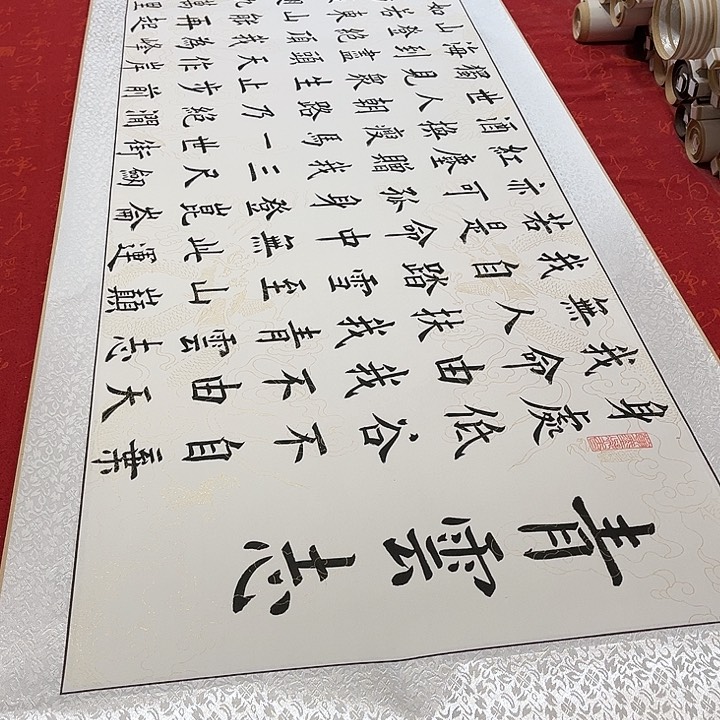 青雲志
身處低谷不自棄
我命由我不由天
無人扶我青雲志
我自踏雪至山巔
若是命中無此運
亦可孤身登崑崙
紅塵贈我三尺劍
酒換瘦馬一世街
世人朝路乃絕澗
獨見眾生止步前
海到盡頭天作岸
山登絕頂我為峰
如若東山能再起
里